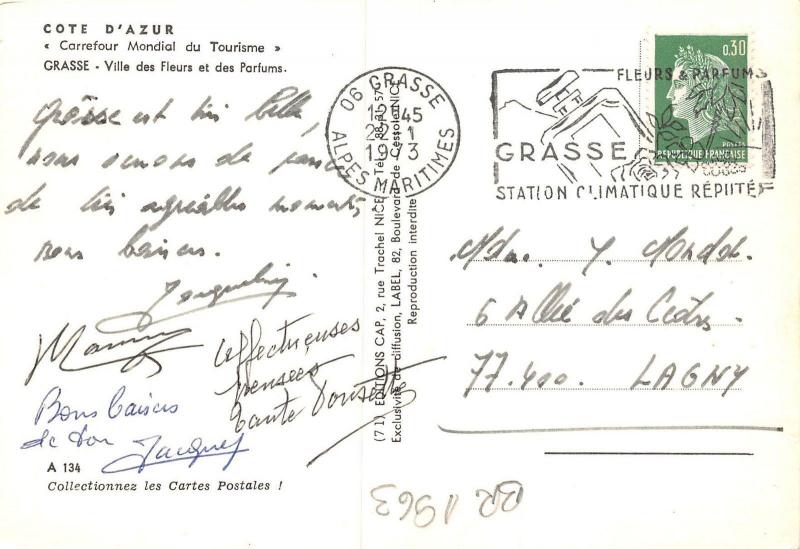 COTE D'AZUR
« Carrefour Mondial du Tourisme »
GRASSE - Ville des Fleurs et des Parfums.
Grasse est très belle,
nous venons de passer
de très agréables moments,
nous baisers.
affectueuses
pensées
tante
Bons baisers
de ton
Jacques
A 134
Collectionnez les Cartes Postales !
06 GRASSE
45
1973
ALPES MARITIMES
(71) EDITIONS CAP, 2, rue Trachel NICE - Tél.
Exclusivité de diffusion, LABEL, 82, Boulevard de Cessole NICE
Reproduction interdite
0,30
POSTES
REPUBLIQUE FRANÇAISE
FLEURS & PARFUMS
GRASSE
STATION CLIMATIQUE RÉPUTÉE
Mdm. Y.
6 Allée des Cèdres
77.400. LAGNY
BR 1963